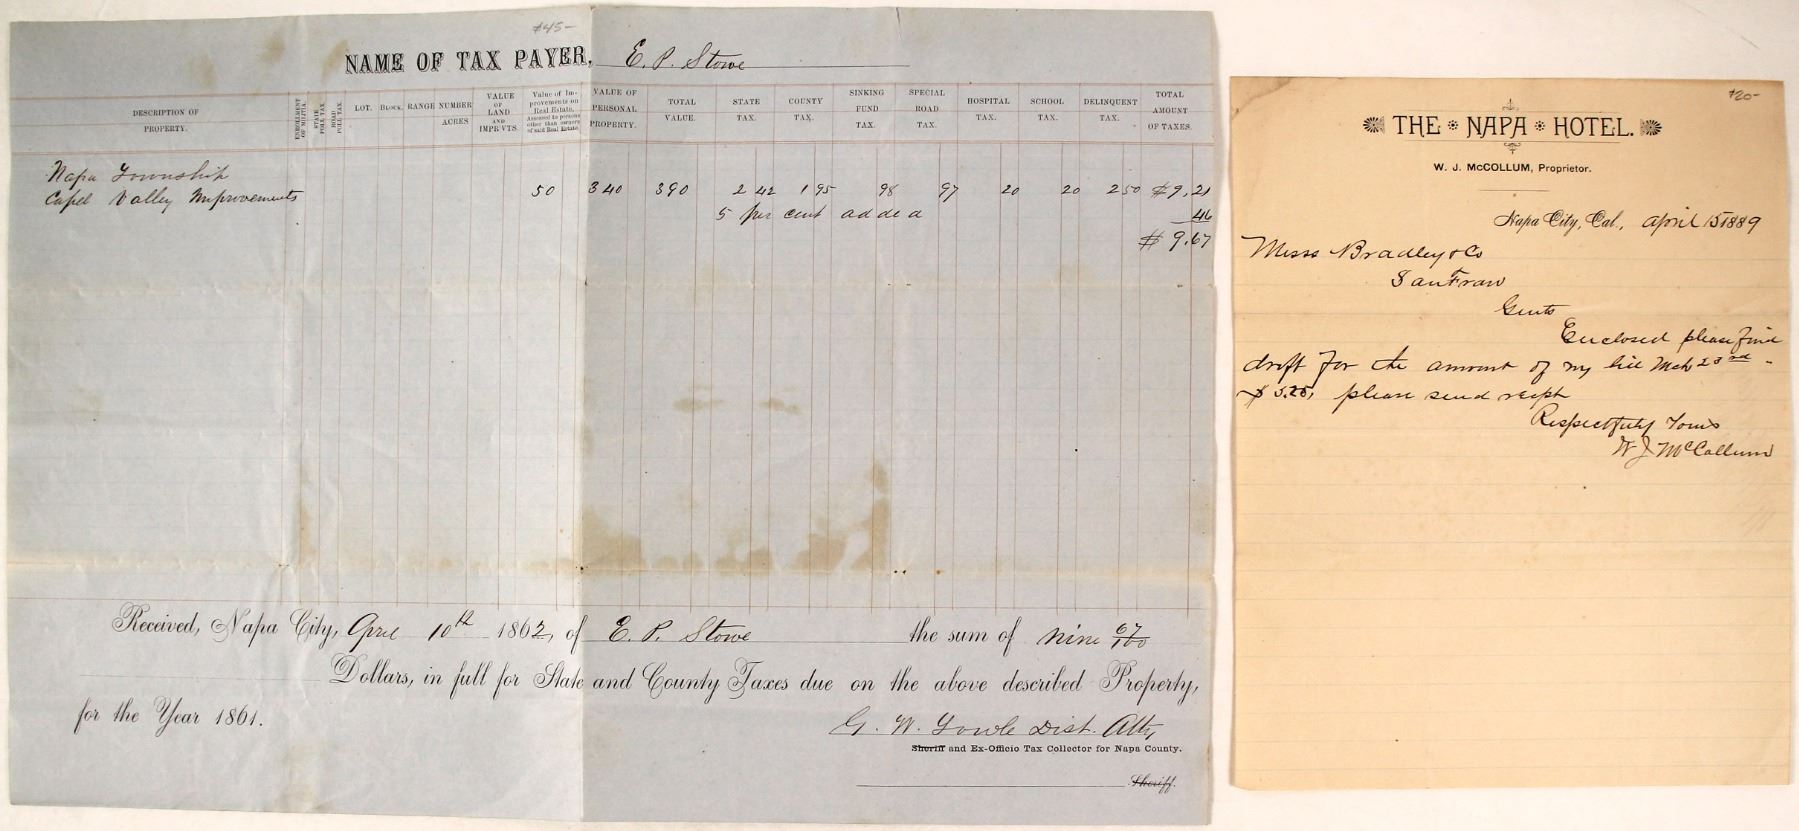 $45-
NAME OF TAX PAYER, E. P. Stowe
DESCRIPTION OF PROPERTY.
ENROLLMENT OF MILITIA.
STATE POLL TAX
ROAD POLL TAX.
LOT.
BLOCK.
RANGE
NUMBER ACRES.
VALUE OF LAND AND IMPR'VTS.
Value of Improvements on Real Estate, Assessed to persons other than owners of said Real Estate.
VALUE OF PERSONAL PROPERTY.
TOTAL VALUE.
STATE TAX.
COUNTY TAX.
SINKING FUND TAX.
SPECIAL ROAD TAX.
HOSPITAL TAX.
SCHOOL TAX.
DELINQUENT TAX.
TOTAL AMOUNT OF TAXES.
Napa Township
Capel Valley Improvements 50 340 390 2 42 1 95 98 97 20 20 2 50 $9,21
5 per cent added 46
$9.67
Received, Napa City, April 10th 1862, of E. P. Stowe the sum of nine 67/100
Dollars, in full for State and County Taxes due on the above described Property,
for the Year 1861.
G. W. Towle Dist. Atty,
Sheriff and Ex-Officio Tax Collector for Napa County.
Sheriff.
$20-
THE NAPA HOTEL.
W. J. McCOLLUM, Proprietor.
Napa City, Cal., April 15 1889
Messs Bradley & Co
San Fran
Gents
Enclosed please find
draft for the amount of my bill Mch 23rd -
$5.25, please send recipt
Respectfully Yours
W J McCollum